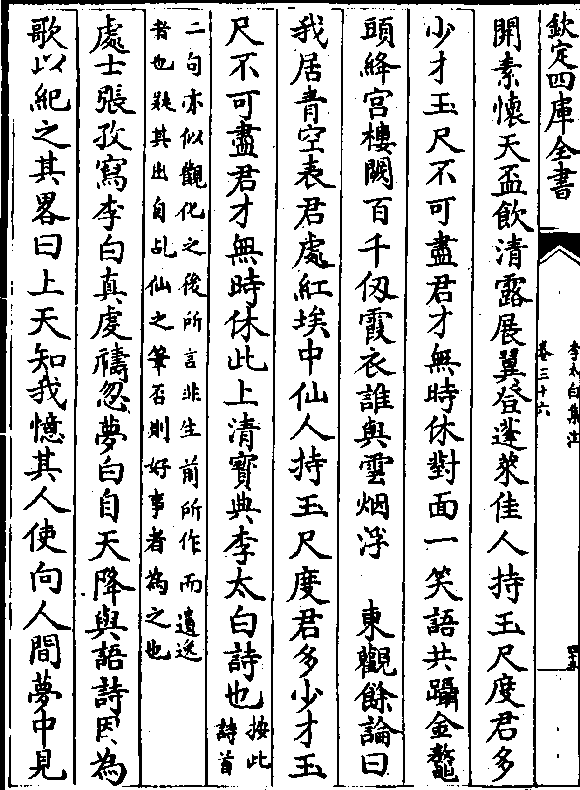 欽定四庫全書
李太白集注
卷三十六
開素懷天盃飲清露展翼登蓬萊佳人持玉尺度君多
少才玉尺不可盡君才無時休對面一笑語共躡金鼇
頭絳宫樓闕百千仭霞衣誰與雲烟浮　東觀餘論曰
我居青空表君處紅埃中仙人持玉尺度君多少才玉
尺不可盡君才無時休此上清寳典李太白詩也按此
詩首
二句亦似觀化之後所言非生前所作而遺逸
者也疑其出自乩仙之筆否則好事者為之也
處士張孜寫李白真虔禱忽夢白自天降與語詩因為
歌以紀之其畧曰上天知我憶其人使向人間夢中見